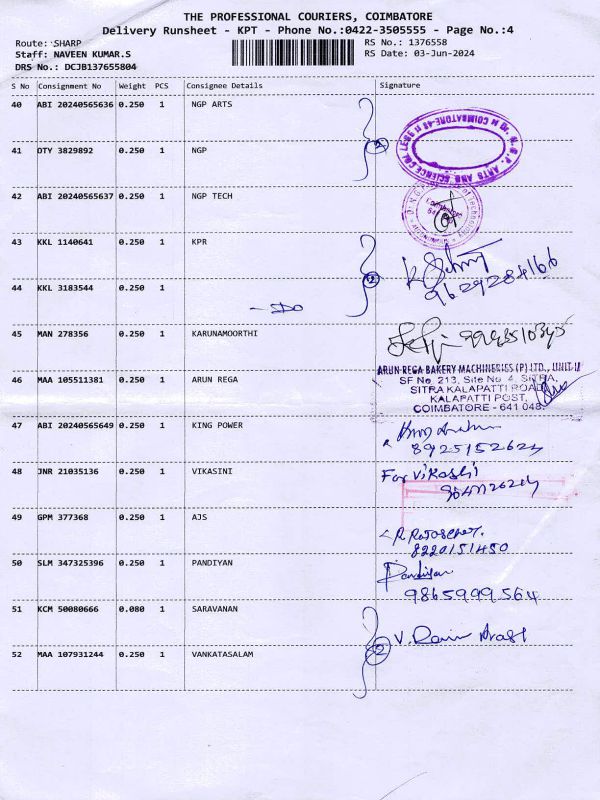 THE PROFESSIONAL COURIERS, COIMBATORE
Delivery Runsheet - KPT - Phone No.:0422-3505555 - Page No.:4
Route: SHARP
RS No.: 1376558
Staff: NAVEEN KUMAR.S
RS Date: 03-Jun-2024
DRS No.: DCJB137655804
S No Consignment No Weight PCS Consignee Details Signature
40 ABI 20240565636 0.250 1 NGP ARTS
41 OTY 3829892 0.250 1 NGP
2
42 ABI 20240565637 0.250 1 NGP TECH
43 KKL 1140641 0.250 1 KPR
2
9629284166
44 KKL 3183544 0.250 1
45 MAN 278356 0.250 1 KARUNAMOORTHI
46 MAA 105511381 0.250 1 ARUN REGA
ARUN REGA BAKERY MACHINERIES (P) LTD., UNIT-II
SF No. 213, Site No 4, SITRA,
SITRA KALAPATTI ROAD,
KALAPATTI POST,
COIMBATORE - 641 048.
47 ABI 20240565649 0.250 1 KING POWER
8925152624
48 JNR 21035136 0.250 1 VIKASINI
For
49 GPM 377368 0.250 1 AJS
8220151450
50 SLM 347325396 0.250 1 PANDIYAN
Pandiyan
9865999564
51 KCM 50080666 0.080 1 SARAVANAN
2
52 MAA 107931244 0.250 1 VANKATASALAM